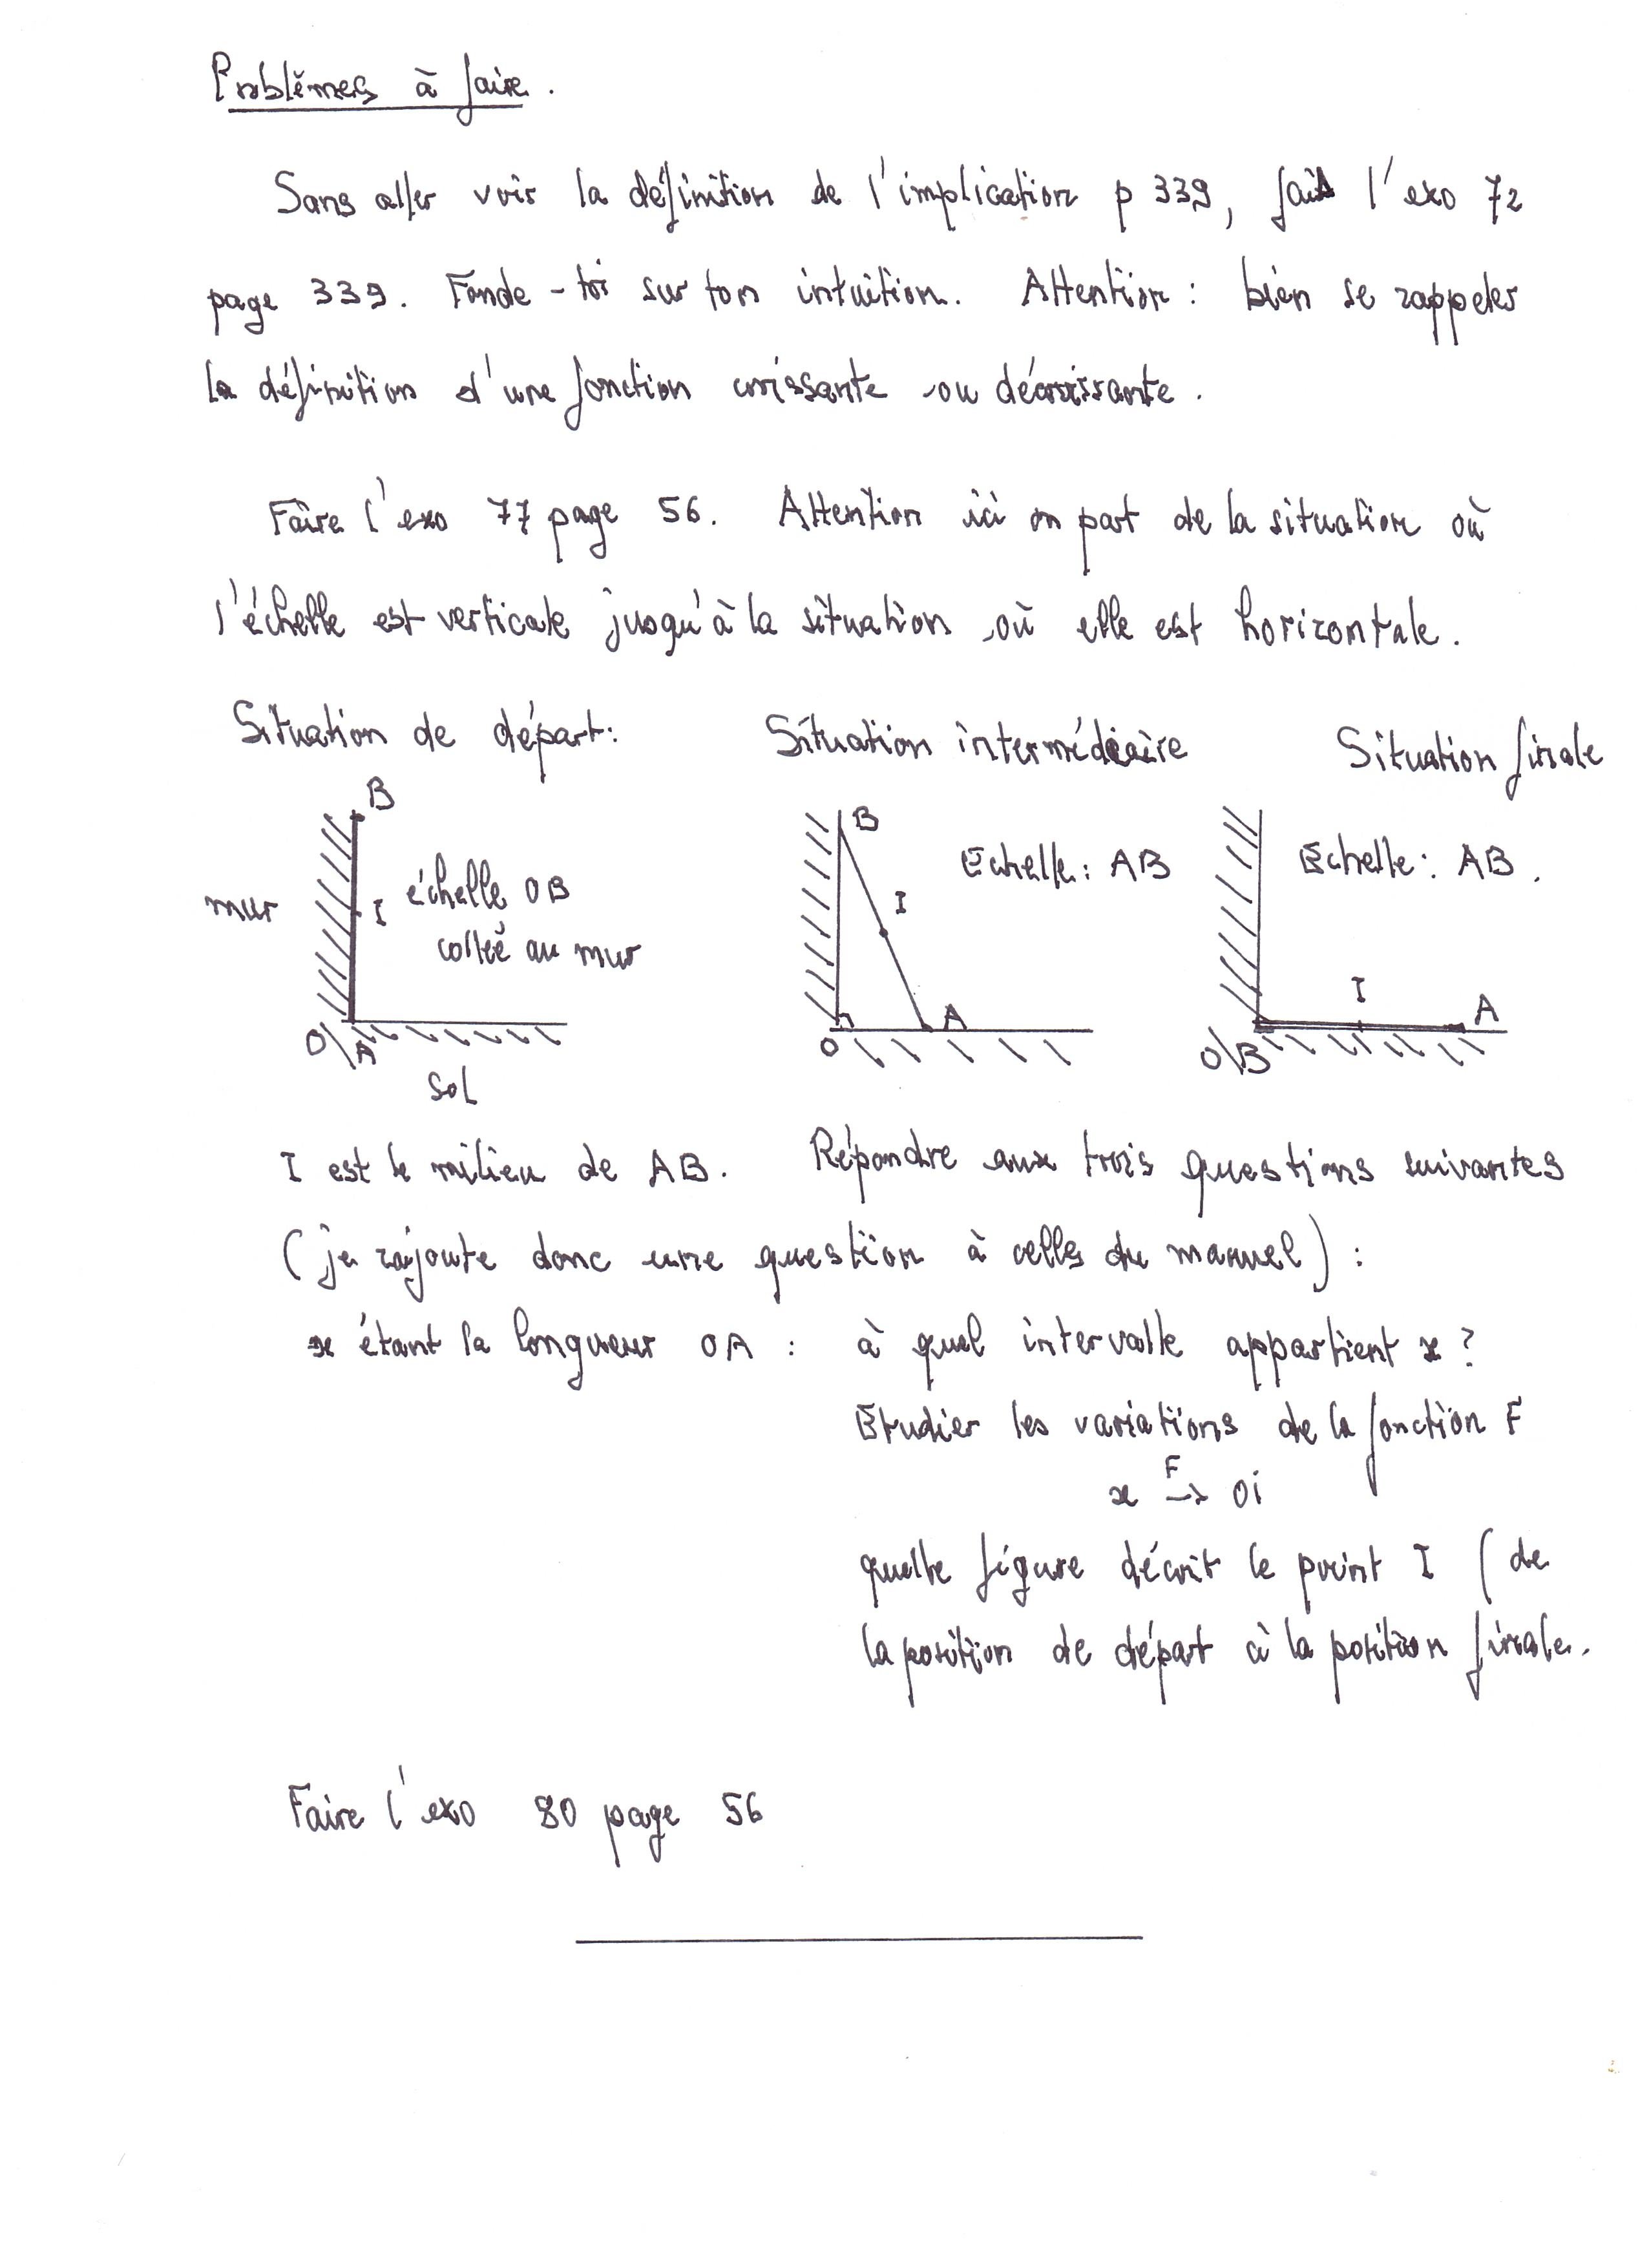 Problèmes à faire.
Sans aller voir la définition de l'implication p 339, fais l'exo 72
page 339. Fonde-toi sur ton intuition. Attention : bien se rappeler
la définition d'une fonction croissante ou décroissante.
Faire l'exo 77 page 56. Attention ici on part de la situation où
l'échelle est verticale jusqu'à la situation où elle est horizontale.
Situation de départ: Situation intermédiaire Situation finale
B
mur
I
échelle OB
collée au mur
O\A
Sol
B
Echelle: AB
I
O
A
Echelle: AB.
I
O\B
A
I est le milieu de AB. Répondre aux trois questions suivantes
(je rajoute donc une question à celles du manuel) :
x étant la longueur OA : à quel intervalle appartient x ?
Etudier les variations de la fonction F
F
x → Oi
quelle figure décrit le point I (de
la position de départ à la position finale.
Faire l'exo 80 page 56